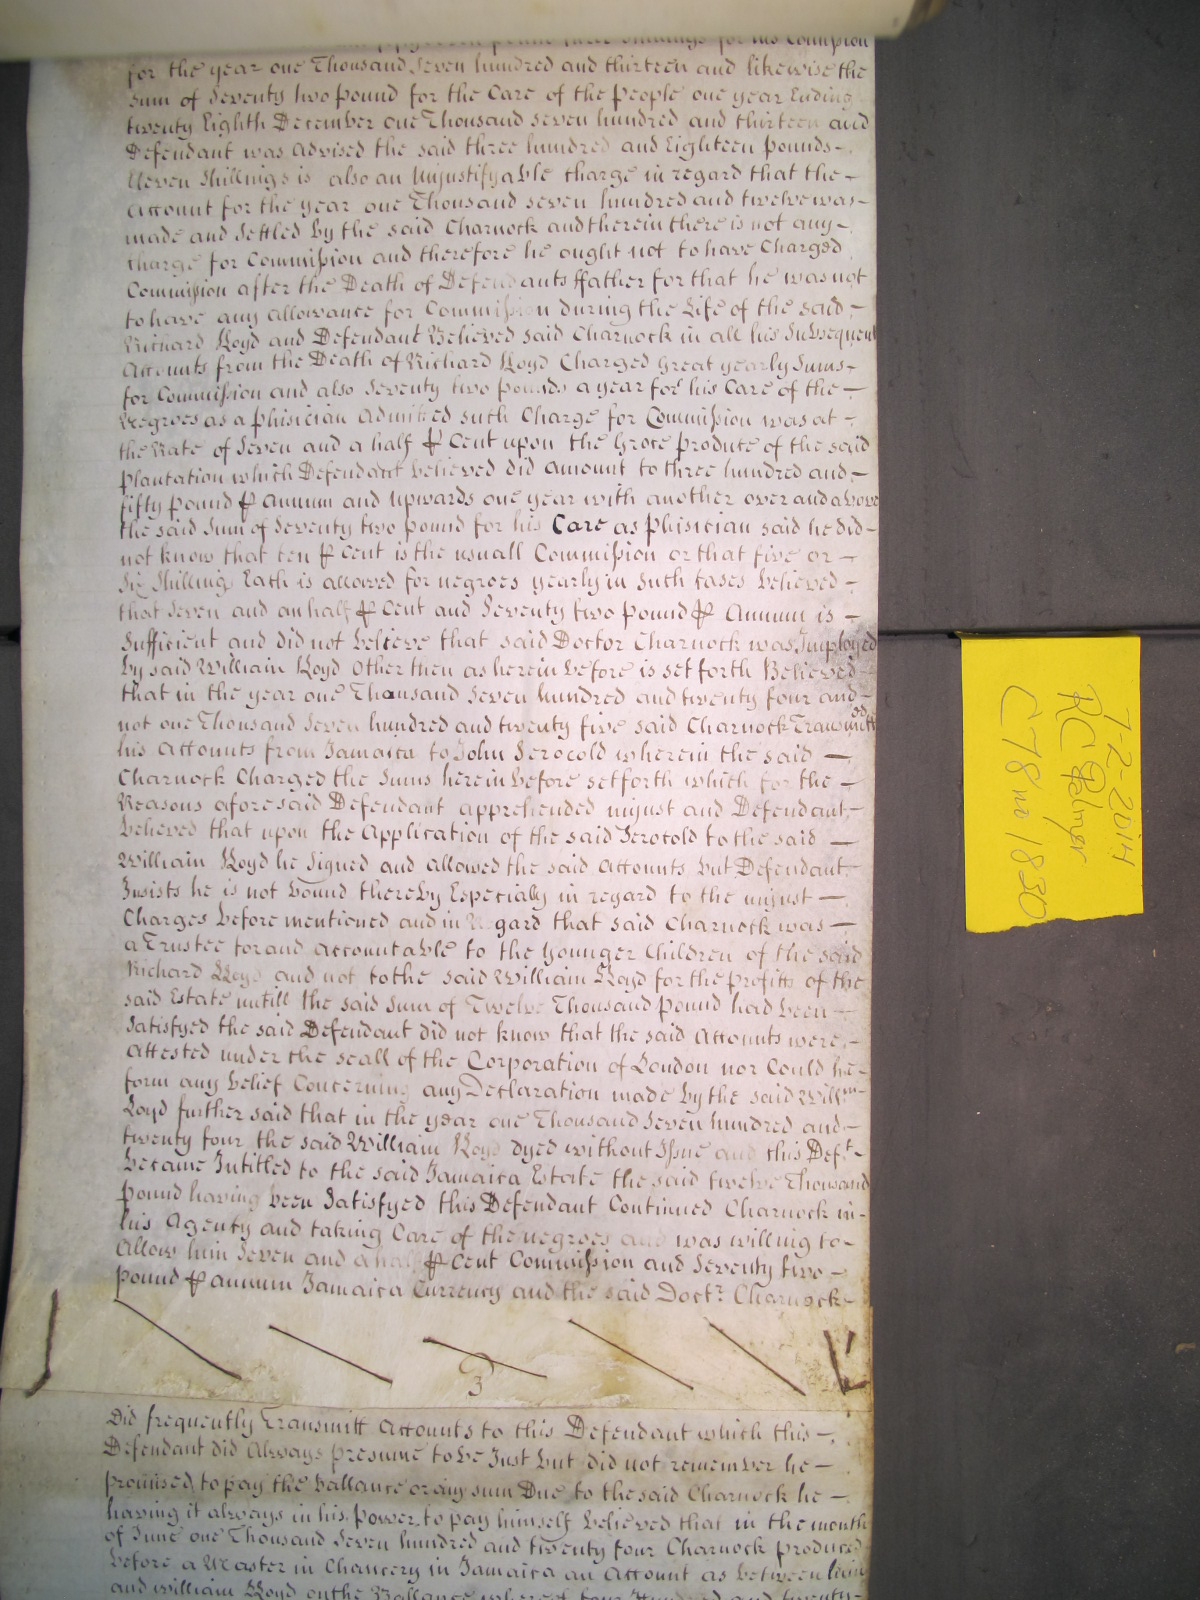 three Shillings for his Comission
for the year one Thousand Seven hundred and thirteen and likewise the
Sum of Seventy two pound for the Care of the people one year Ending
twenty Eighth December one Thousand seven hundred and thirteen and
Defendant was advised the said three hundred and Eighteen pounds
Seven Shillings is also an Unjustifyable Charge in regard that the
Account for the year one Thousand seven hundred and twelve was
made and Settled by the said Charnock and therein there is not any
Charge for Commission and therefore he ought not to have Charged
Commission after the Death of Defendants ffather for that he was not
to have any allowance for Commission during the Life of the said
Richard Lloyd and Defendant Believed said Charnock in all his Subsequent
Accounts from the Death of Richard Lloyd Charged great yearly Sums
for Commission and also Seventy two pounds a year for his Care of the
Negroes as a phisician Admitted such Charge for Commission was at
the Rate of Seven and a half ⅌ Cent upon the Groce produce of the said
plantation which Defendant believed did amount to three hundred and
fifty pound ⅌ annum and upwards one year with another over and above
the said Sum of Seventy two pound for his Care as phisician said he did
not know that ten ⅌ Cent is the usuall Commission or that five or
Six Shillings Each is allowed for negroes yearly in such Cases believed
that Seven and an half ⅌ Cent and Seventy two pound ⅌ Annum is
Sufficient and did not believe that said Doctor Charnock was Imployed
by said William Lloyd other then as herein before is set forth Believed
that in the year one Thousand Seven hundred and twenty four and
not one Thousand Seven hundred and twenty five said Charnock Transmitted
his Accounts from Jamaica to John Serocold wherein the said
Charnock Charged the Sums herein before set forth which for the
Reasons aforesaid Defendant apprehended unjust and Defendant
believed that upon the Application of the said Serocold to the said
William Lloyd he Signed and allowed the said Accounts but Defendant
Insists he is not bound thereby Especially in regard to the unjust
Charges before mentioned and in Regard that said Charnock was
a Trustee for and accountable to the younger Children of the said
Richard Lloyd and not to the said William Lloyd for the profitts of the
said Estate untill the said Sum of Twelve Thousand pound had been
Satisfyed the said Defendant did not know that the said Accounts were
Attested under the seall of the Corporation of London nor Could he
form any belief Concerning any Declaration made by the said Willm
Loyd further said that in the year one Thousand Seven hundred and
twenty four the said William Lloyd dyed without Issue and this Deft.
became Intitled to the said Jamaica Estate the said twelve Thousand
pound having been Satisfyed this Defendant Continued Charnock in
his Agency and taking Care of the negroes and was willing to
Allow him Seven and a half ⅌ Cent Commission and Seventy two
pound ⅌ annum Jamaica Currency and the said Doctr. Charnock
3
Did frequently Transmitt Accounts to this Defendant which this
Defendant did Always presume to be Just but did not remember he
promised to pay the Ballance or any sum Due to the said Charnock he
having it always in his power to pay himself believed that in the month
of June one Thousand Seven hundred and twenty four Charnock produced
before a Master in Chancery in Jamaica an Account as between him
and William Lloyd on the Ballance whereof four Hundred and twenty
7-2-2014
RC Palmer
C78 no 1830